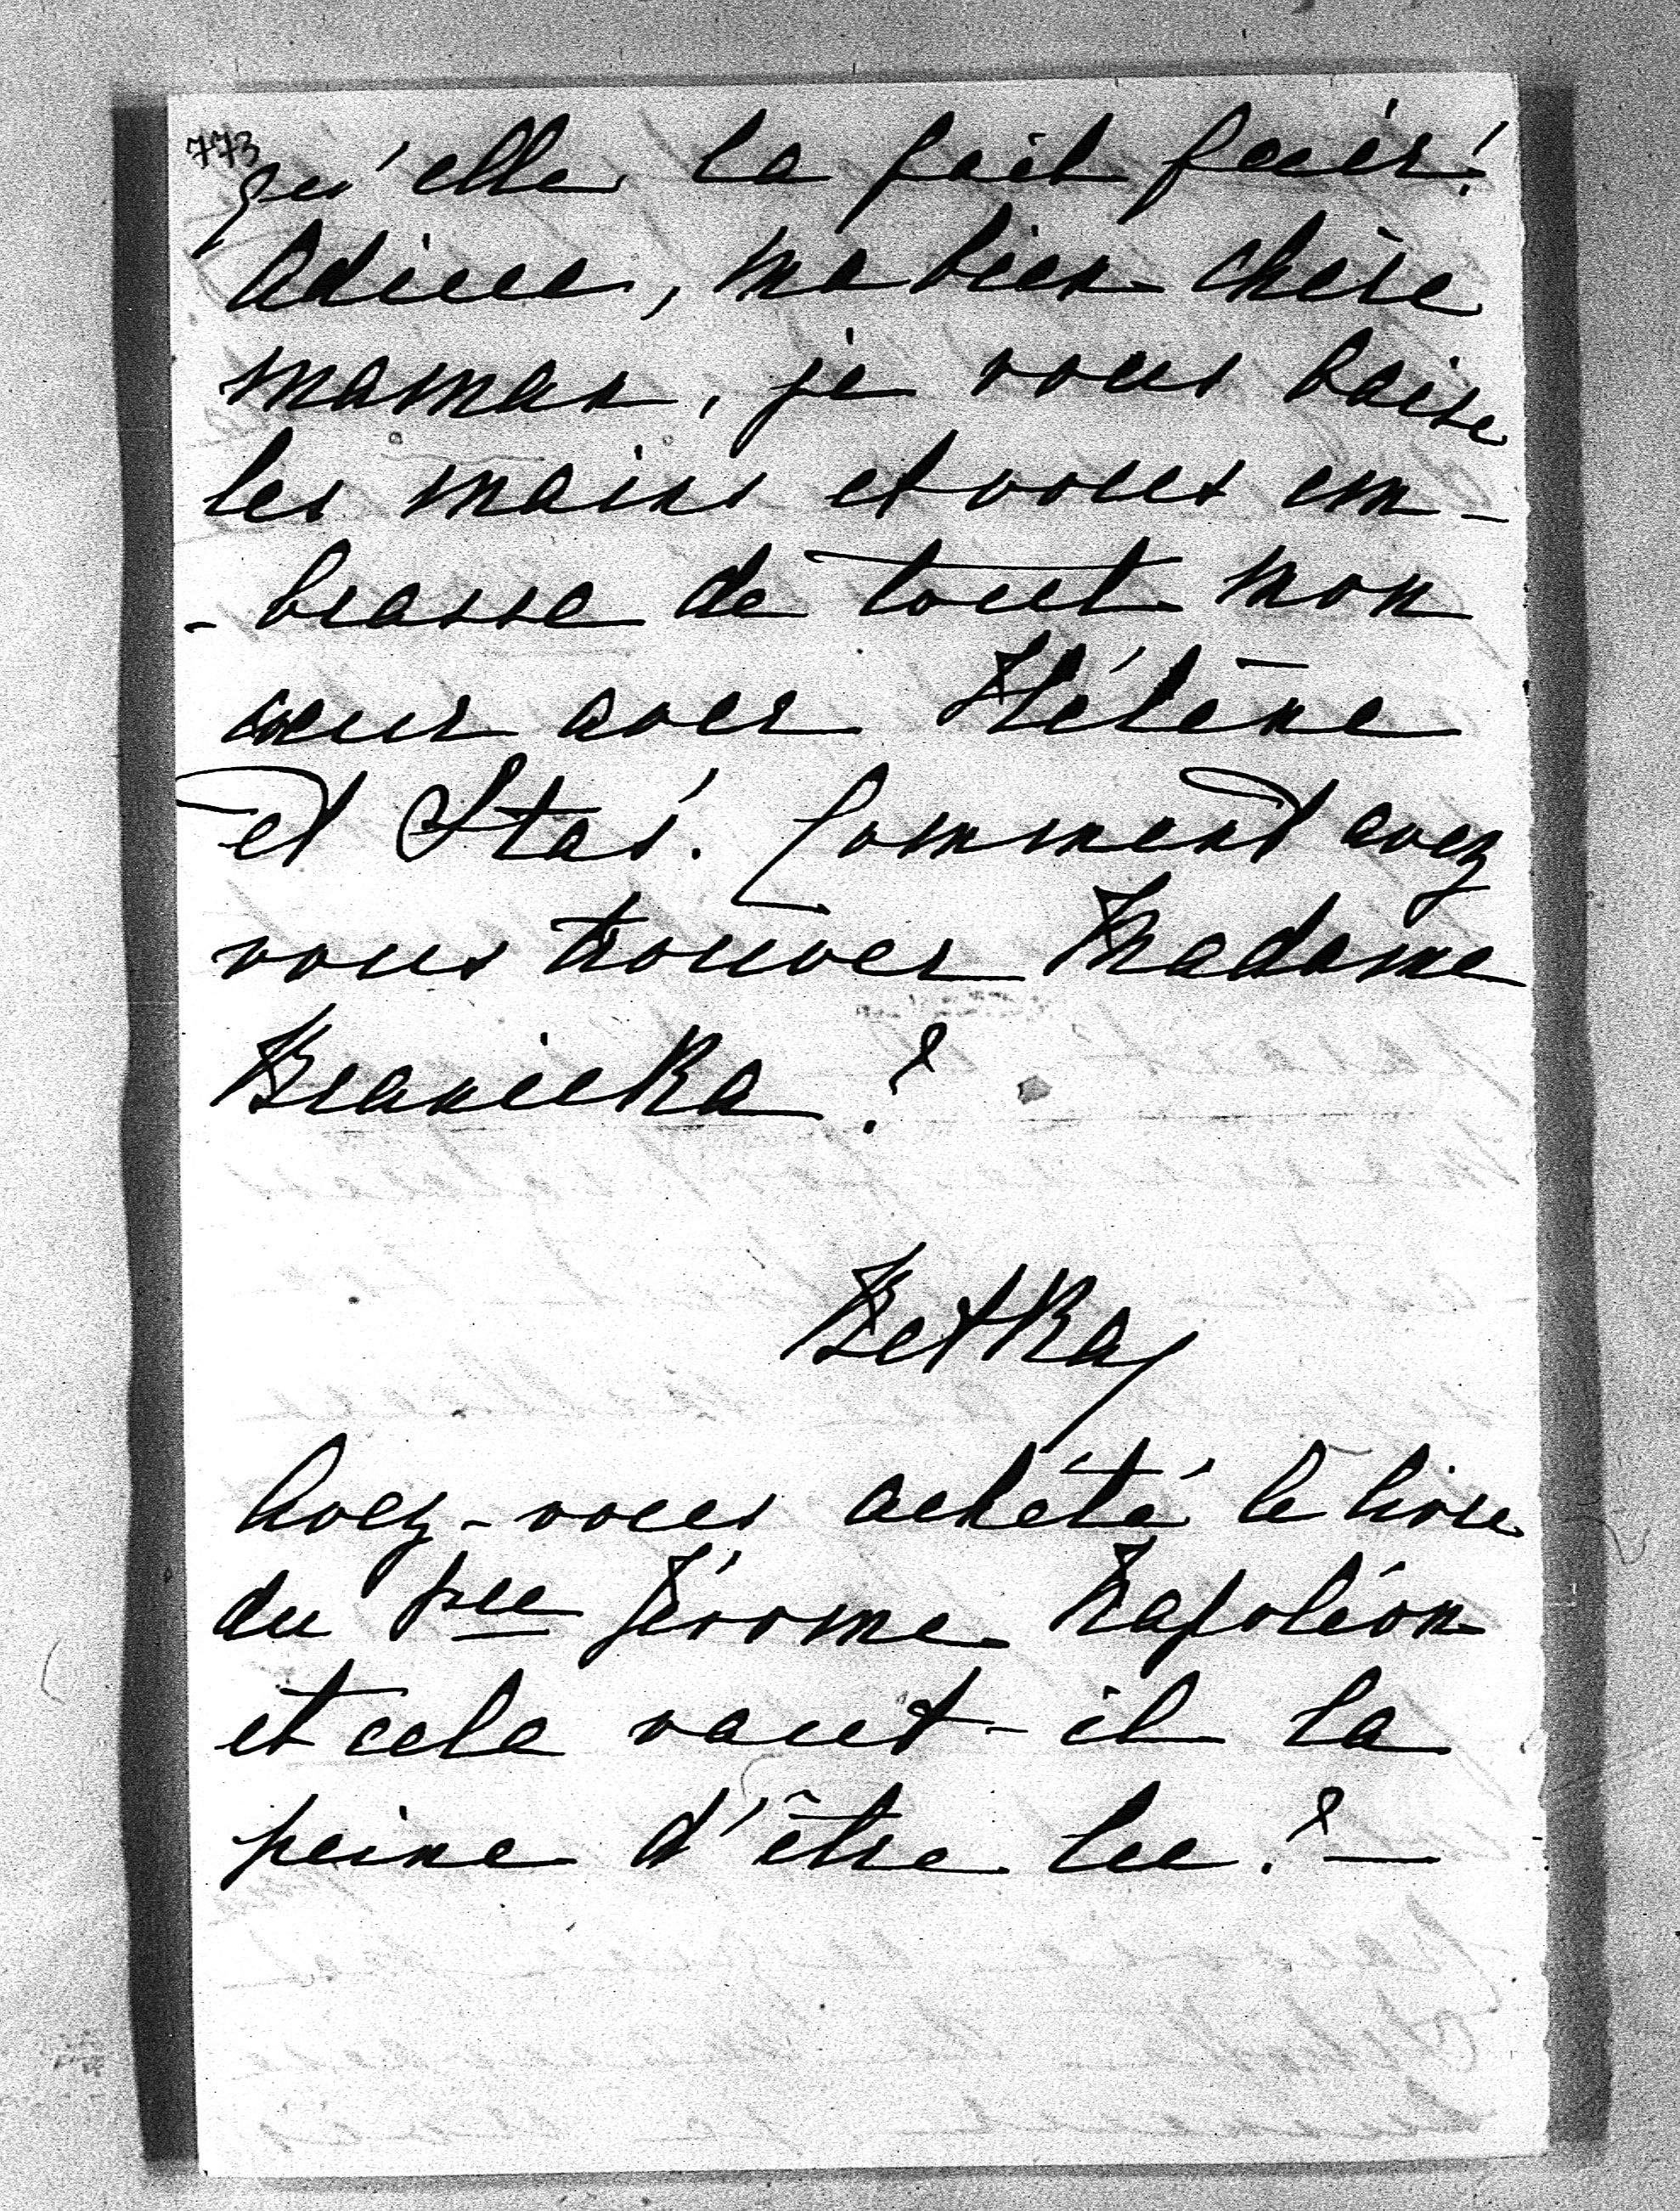 773
qu'elle la fait fuir!
Adieu, ma bien chère
maman, je vous baise
les mains et vous em-
-brasse de tout mon
cœur avec Hélène
et Staś. Comment avez
vous trouver Madame
Branicka?
Betka
Avez-vous acheté le livre
du Pce Jérome Napoléon
et cela vaut-il la
peine d'être lu?—